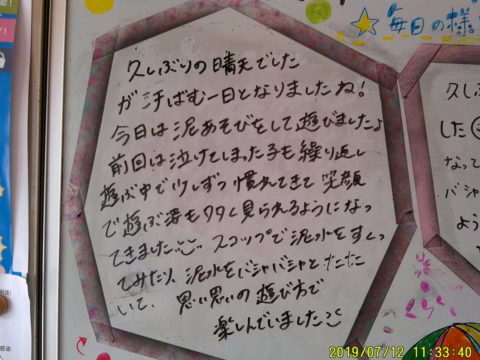 毎日の様
久しぶりの晴天でした
が汗ばむ一日となりましたね!
今日は泥あそびをして遊びました♪
前回は泣けてしまった子も繰り返し
遊ぶ中で少しずつ慣れてきて笑顔
で遊ぶ姿も多く見られるようになっ
てきました。スコップで泥水をすくっ
てみたり、泥水をバシャバシャとたた
いて、思い思いの遊び方で
楽しんでいました
久しぶ
した
なって
バシャ
よう
2019/07/12 11:33:40